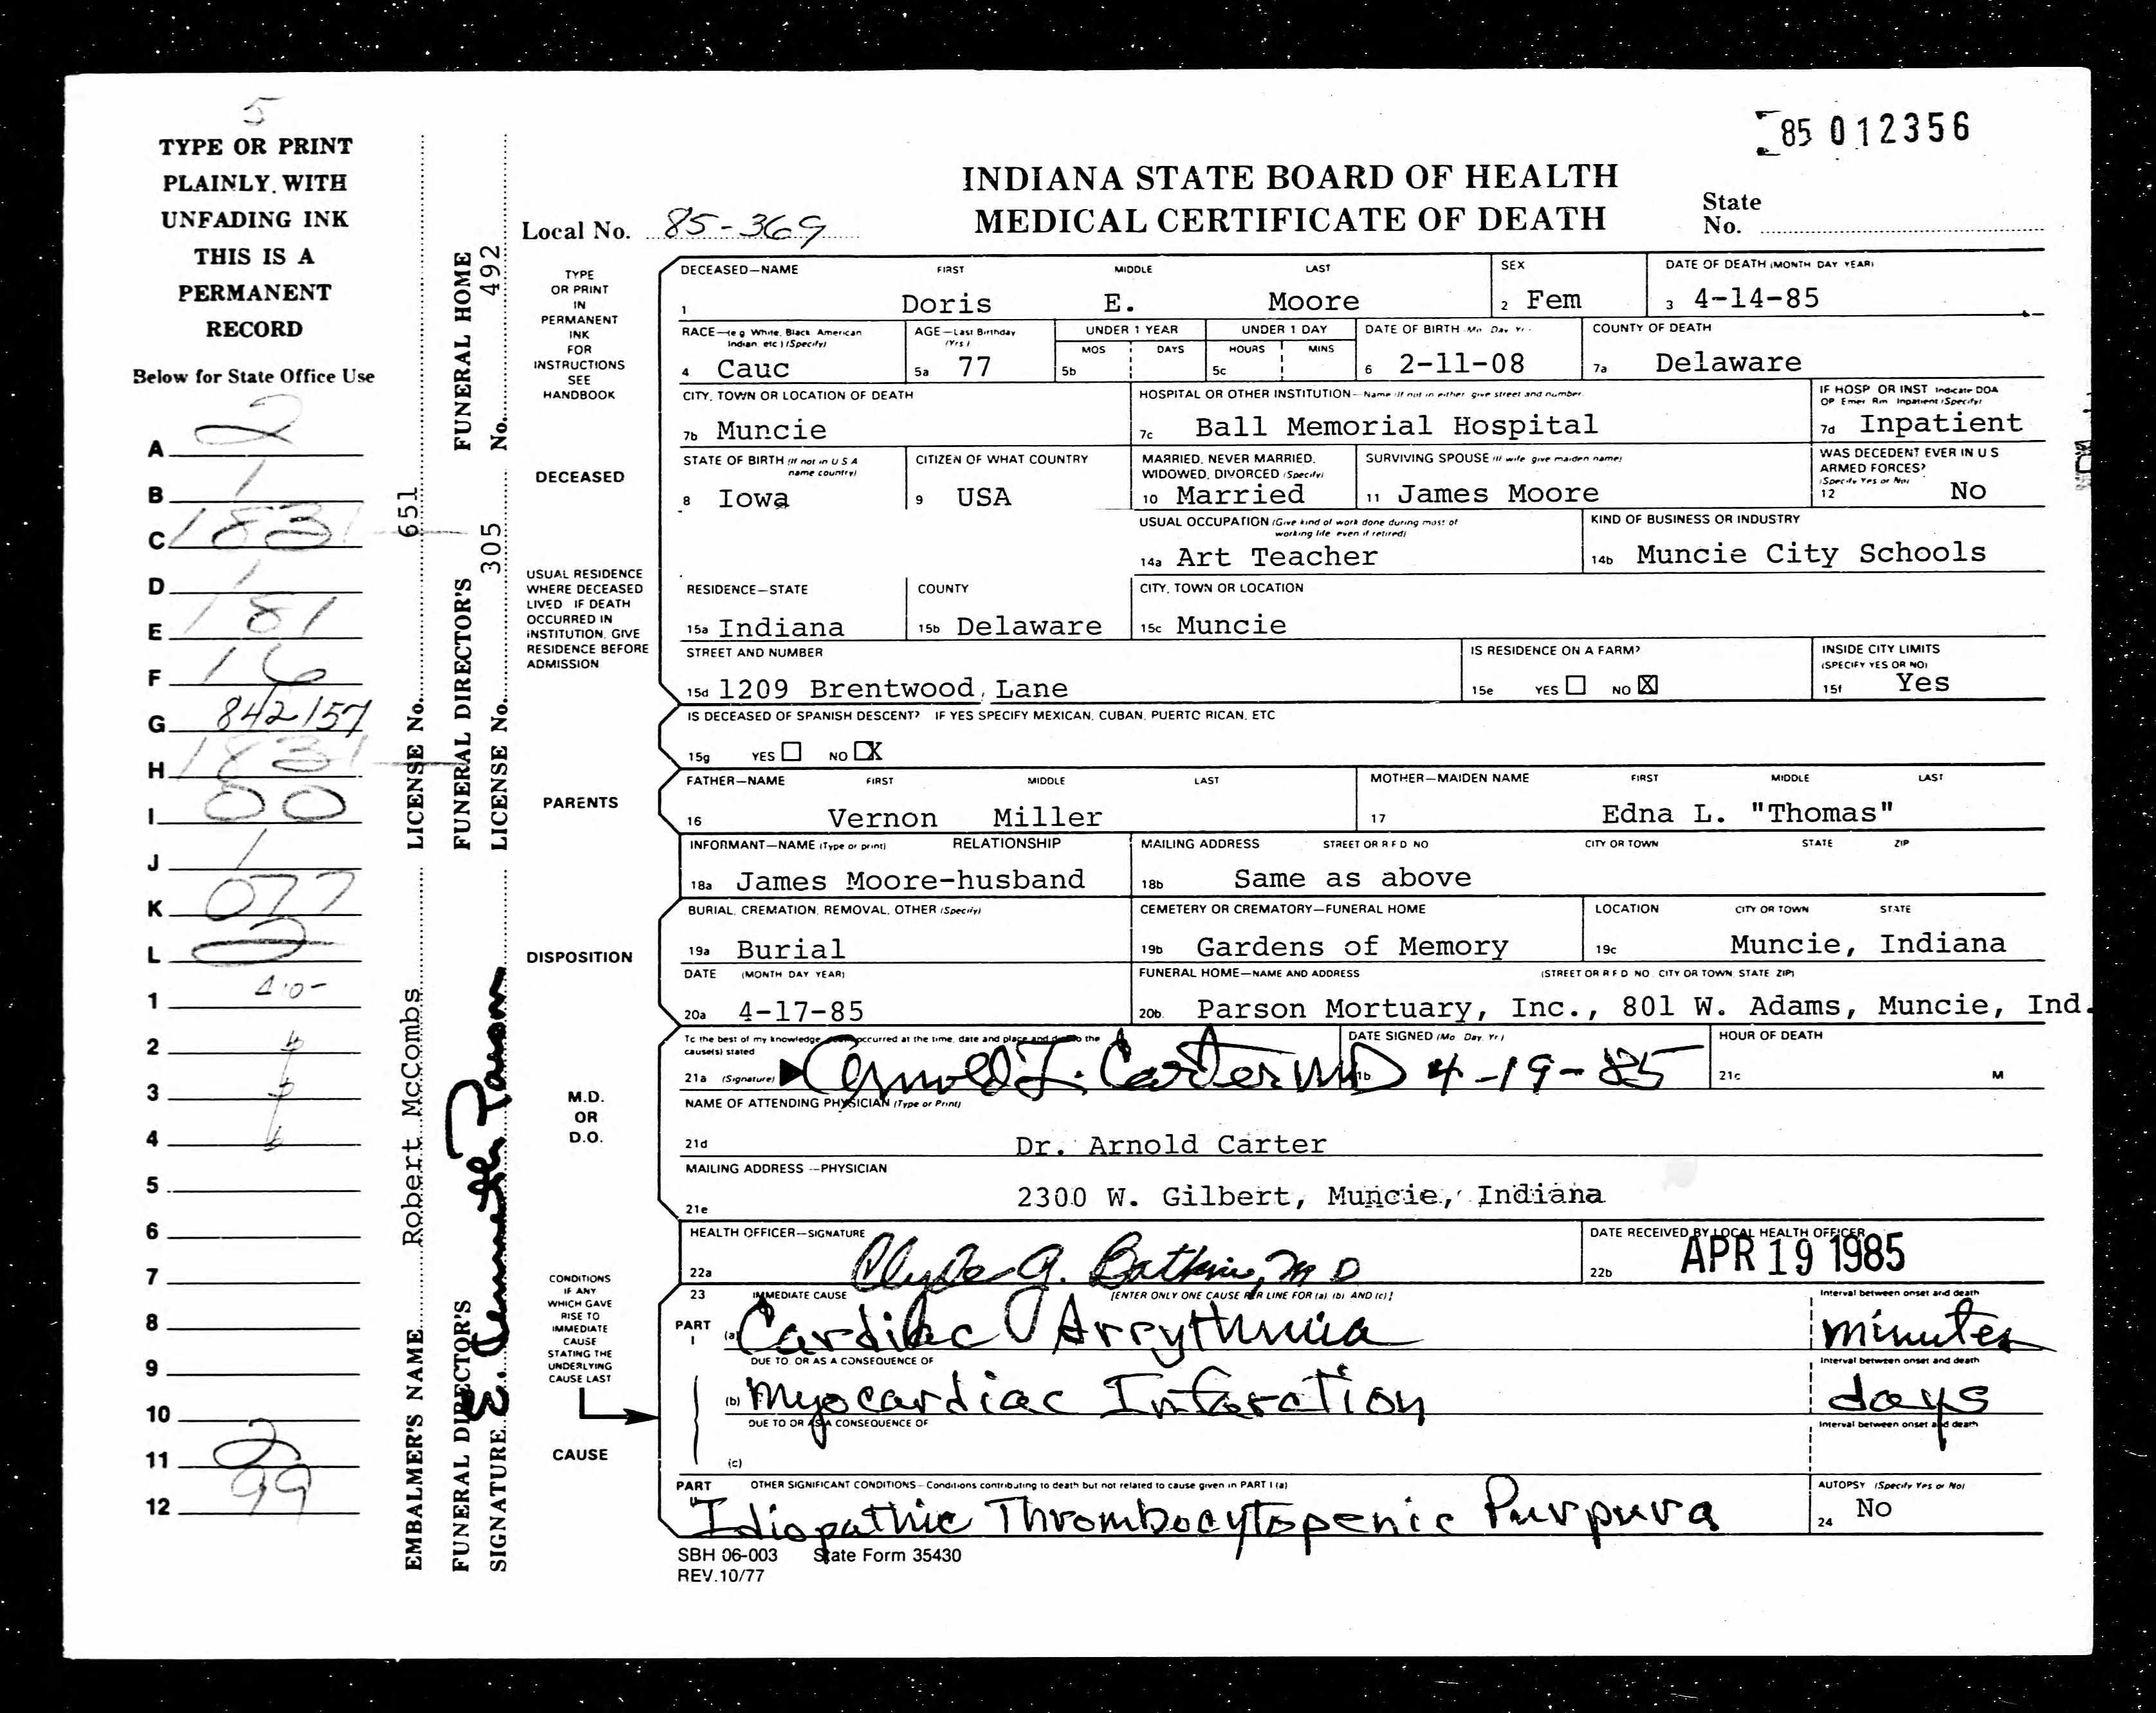 5
TYPE OR PRINT
PLAINLY, WITH
UNFADING INK
THIS IS A
PERMANENT
RECORD
Below for State Office Use
A 2
B 1
C 1831
D 1
E 181
F 16
G 842157
H 1831
I 00
J 1
K 077
L
1
2
3
4
5
6
7
8
9
10
11 2
12 99
EMBALMER'S NAME Robert McCombs LICENSE No. 651
FUNERAL DIRECTOR'S SIGNATURE E. Parson
FUNERAL DIRECTOR'S LICENSE No. 305
FUNERAL HOME No. 492
85 012356
INDIANA STATE BOARD OF HEALTH
MEDICAL CERTIFICATE OF DEATH
State No.
Local No. 85-369
TYPE OR PRINT IN PERMANENT INK FOR INSTRUCTIONS SEE HANDBOOK
DECEASED—NAME FIRST MIDDLE LAST SEX DATE OF DEATH (MONTH DAY YEAR)
1 Doris E. Moore 2 Fem 3 4-14-85
RACE—(e g White, Black American Indian, etc ) (Specify) AGE—Last Birthday (Yrs ) UNDER 1 YEAR UNDER 1 DAY DATE OF BIRTH Mo Day Yr COUNTY OF DEATH
MOS DAYS HOURS MINS
4 Cauc 5a 77 5b 5c 6 2-11-08 7a Delaware
CITY, TOWN OR LOCATION OF DEATH HOSPITAL OR OTHER INSTITUTION—Name (If not in either give street and number) IF HOSP OR INST Indicate DOA OP Emer Rm Inpatient (Specify)
7b Muncie 7c Ball Memorial Hospital 7d Inpatient
DECEASED
STATE OF BIRTH (If not in U S A name country) CITIZEN OF WHAT COUNTRY MARRIED, NEVER MARRIED, WIDOWED, DIVORCED (Specify) SURVIVING SPOUSE (If wife give maiden name) WAS DECEDENT EVER IN U S ARMED FORCES? (Specify Yes or No)
8 Iowa 9 USA 10 Married 11 James Moore 12 No
USUAL OCCUPATION (Give kind of work done during most of working life even if retired) KIND OF BUSINESS OR INDUSTRY
14a Art Teacher 14b Muncie City Schools
USUAL RESIDENCE WHERE DECEASED LIVED IF DEATH OCCURRED IN INSTITUTION, GIVE RESIDENCE BEFORE ADMISSION
RESIDENCE—STATE COUNTY CITY, TOWN OR LOCATION
15a Indiana 15b Delaware 15c Muncie
STREET AND NUMBER IS RESIDENCE ON A FARM? INSIDE CITY LIMITS (SPECIFY YES OR NO)
15d 1209 Brentwood Lane 15e YES NO X 15f Yes
IS DECEASED OF SPANISH DESCENT? IF YES SPECIFY MEXICAN, CUBAN, PUERTO RICAN, ETC
15g YES NO X
PARENTS
FATHER—NAME FIRST MIDDLE LAST MOTHER—MAIDEN NAME FIRST MIDDLE LAST
16 Vernon Miller 17 Edna L. "Thomas"
INFORMANT—NAME (Type or print) RELATIONSHIP MAILING ADDRESS STREET OR R F D NO CITY OR TOWN STATE ZIP
18a James Moore-husband 18b Same as above
DISPOSITION
BURIAL, CREMATION, REMOVAL, OTHER (Specify) CEMETERY OR CREMATORY—FUNERAL HOME LOCATION CITY OR TOWN STATE
19a Burial 19b Gardens of Memory 19c Muncie, Indiana
DATE (MONTH DAY YEAR) FUNERAL HOME—NAME AND ADDRESS (STREET OR R F D NO CITY OR TOWN STATE ZIP)
20a 4-17-85 20b Parson Mortuary, Inc., 801 W. Adams, Muncie, Ind.
M.D. OR D.O.
To the best of my knowledge occurred at the time, date and place and to the cause(s) stated DATE SIGNED (Mo Day Yr) HOUR OF DEATH
21a (Signature) Arnold L. Carter MD 21b 4-19-85 21c M
NAME OF ATTENDING PHYSICIAN (Type or Print)
21d Dr. Arnold Carter
MAILING ADDRESS--PHYSICIAN
21e 2300 W. Gilbert, Muncie, Indiana
HEALTH OFFICER—SIGNATURE DATE RECEIVED BY LOCAL HEALTH OFFICER
22a Clyde G. M D 22b APR 19 1985
CONDITIONS IF ANY WHICH GAVE RISE TO IMMEDIATE CAUSE STATING THE UNDERLYING CAUSE LAST
CAUSE
23 IMMEDIATE CAUSE [ENTER ONLY ONE CAUSE PER LINE FOR (a) (b) AND (c)] Interval between onset and death
PART I (a) Cardiac Arrythmia minutes
DUE TO OR AS A CONSEQUENCE OF Interval between onset and death
(b) Myocardiac Infarction days
DUE TO OR AS A CONSEQUENCE OF Interval between onset and death
(c)
PART II OTHER SIGNIFICANT CONDITIONS—Conditions contributing to death but not related to cause given in PART I (a) AUTOPSY (Specify Yes or No)
Idiopathic Thrombocytopenic Purpura 24 No
SBH 06-003 State Form 35430
REV.10/77